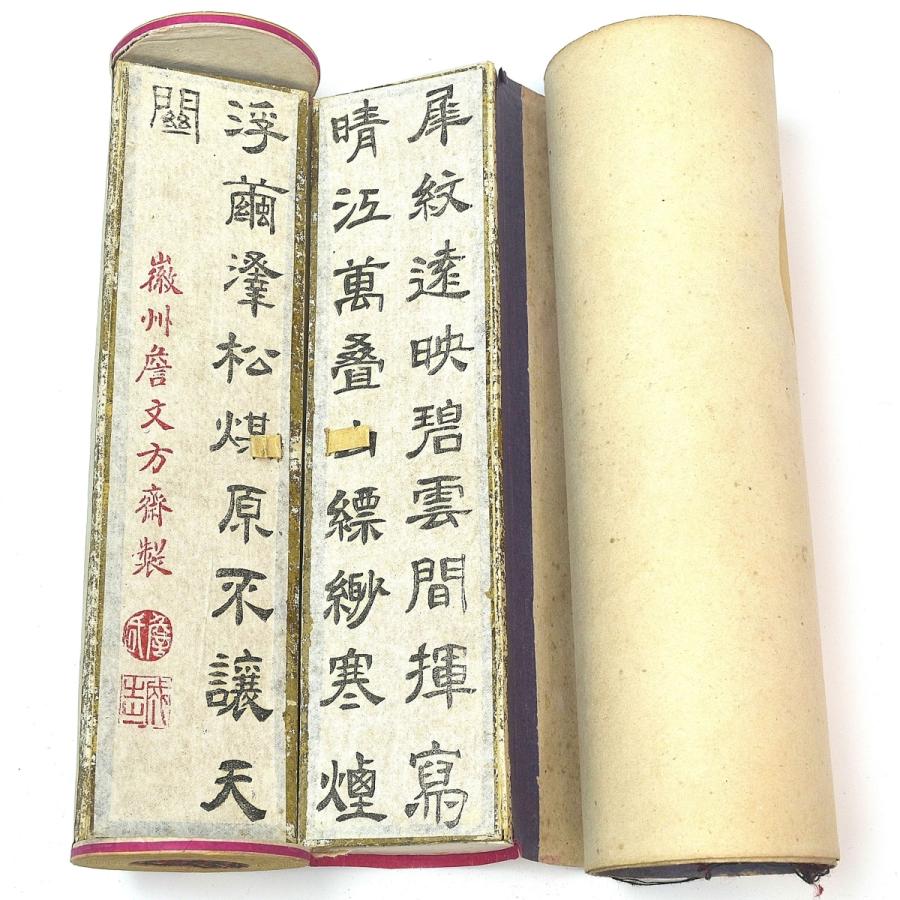 犀紋遠映碧雲間揮寫
晴江萬叠山縹緲寒煙
浮繭松煤原不讓天
關
徽州詹文方齋製